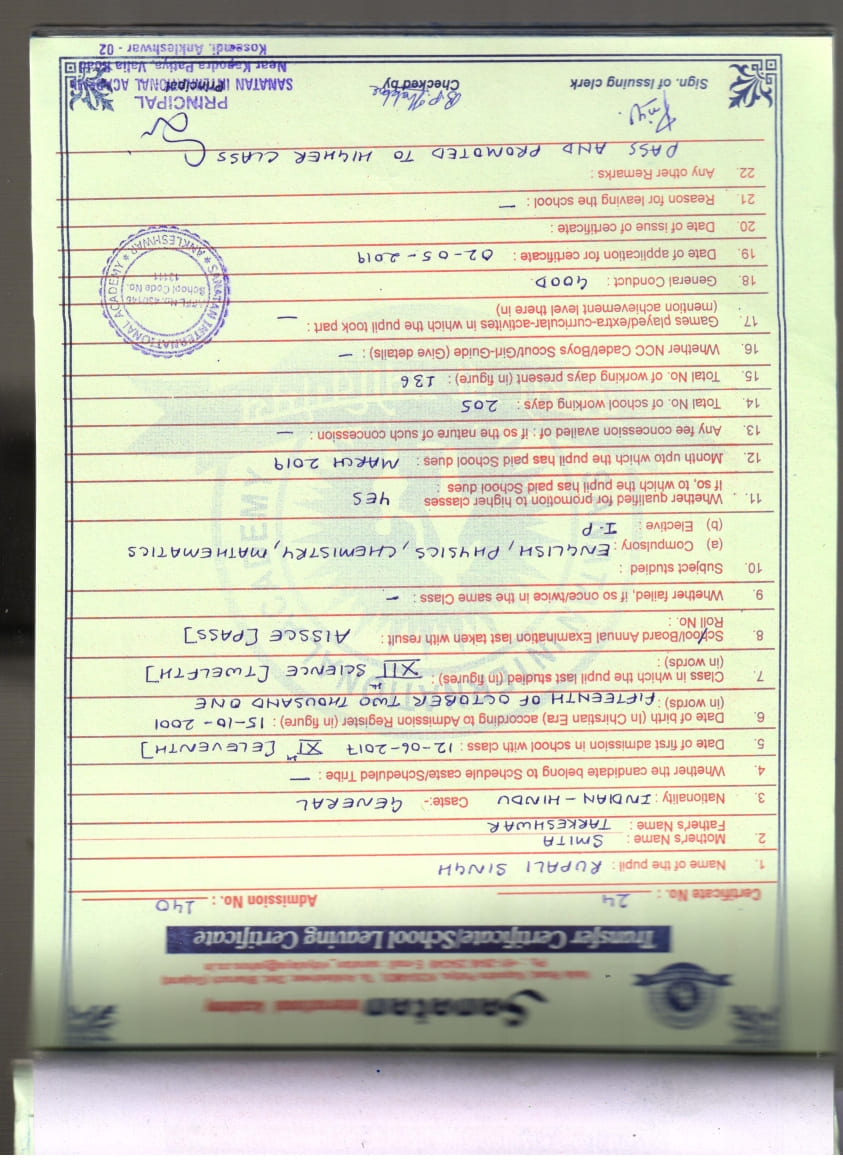 Sanatan
International Academy
Transfer Certificate/School Leaving Certificate
Certificate No. : 24 Admission No. : 140
1. Name of the pupil : RUPALI SINGH
2. Mother's Name : SMITA
Father's Name : TARKESHWAR
3. Nationality : INDIAN - HINDU Caste:- GENERAL
4. Whether the candidate belong to Schedule caste/Scheduled Tribe : —
5. Date of first admission in school with class : 12-06-2017 XI th [ELEVENTH]
6. Date of birth (In Chirstian Era) according to Admission Register (in figure) : 15-10-2001
(in words) : FIFTEENTH OF OCTOBER TWO THOUSAND ONE
7. Class in which the pupil last studied (in figures) : XII th SCIENCE [TWELFTH]
(in words) :
8. School/Board Annual Examination last taken with result : AISSCE [PASS]
Roll No. :
9. Whether failed, if so once/twice in the same Class : -
10. Subject studied :
(a) Compulsory : ENGLISH, PHYSICS, CHEMISTRY, MATHEMATICS
(b) Elective : I.P
11. Whether qualified for promotion to higher classes YES
If so, to which the pupil has paid School dues :
12. Month upto which the pupil has paid School dues : MARCH 2019
13. Any fee concession availed of : if so the nature of such concession : —
14. Total No. of school working days : 205
15. Total No. of working days present (in figure) : 136
16. Whether NCC Cadet/Boys Scout/Girl-Guide (Give details) : —
17. Games played/extra-curricular-activites in which the pupil took part : —
(mention achievement level there in)
18. General Conduct : GOOD.
19. Date of application for certificate : 02-05-2019
20. Date of issue of certificate :
21. Reason for leaving the school : —
22. Any other Remarks :
PASS AND PROMOTED TO HIGHER CLASS
SANATAN INTERNATIONAL ACADEMY * ANKLESHWAR *
School Code No.
Sign. of Issuing clerk Checked by Principal
PRINCIPAL
SANATAN INTERNATIONAL ACADEMY
Near Kapodra Patiya, Valia Road
Kosamdi, Ankleshwar - 02